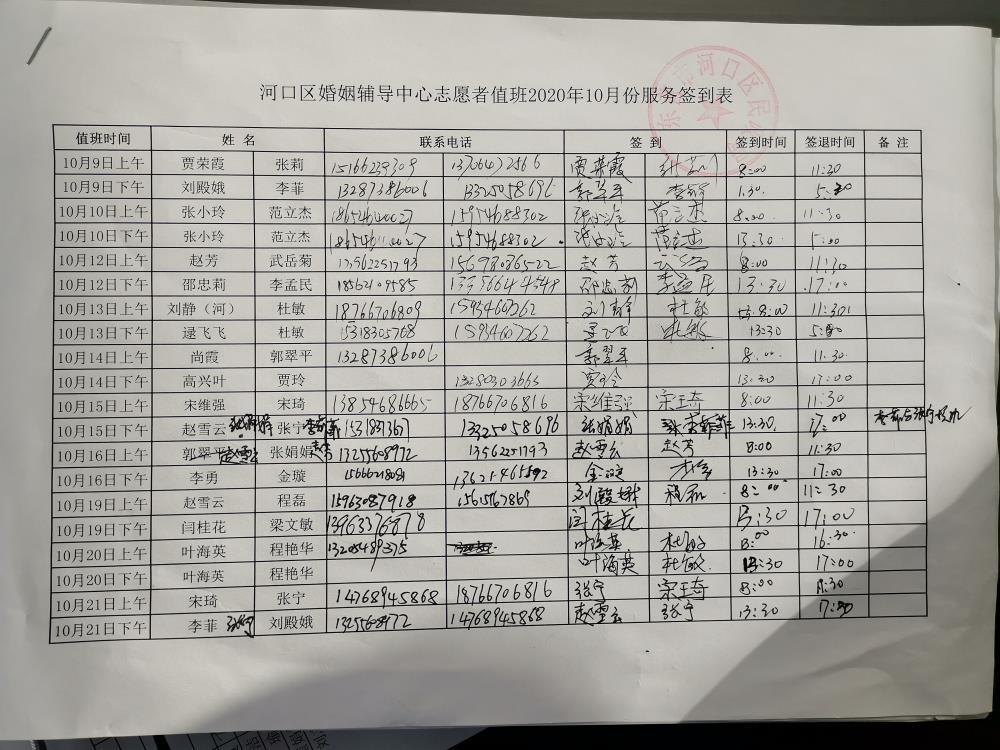 河口区婚姻辅导中心志愿者值班2020年10月份服务签到表
值班时间 姓 名 联系电话 签 到 签到时间 签退时间 备 注
10月9日上午 贾荣霞 张莉 贾荣霞 8:00 11:30
10月9日下午 刘殿娥 李菲 13287386006 13325058696 郭翠平 李菲 1:30 5:30
10月10日上午 张小玲 范立杰 15954688302 张小玲 范立杰 8:00 11:30
10月10日下午 张小玲 范立杰 15954688302 张小玲 范立杰 13:30 5:00
10月12日上午 赵芳 武岳菊 13562251793 15698036522 赵芳 8:00 11:30
10月12日下午 邵忠莉 李孟民 邵忠莉 李孟民 13:30 17:00
10月13日上午 刘静（河） 杜敏 18766706809 15954607262 刘静 杜敏 8:00 11:30
10月13日下午 逯飞飞 杜敏 15318305768 15954607262 逯飞飞 杜敏 13:30 5:00
10月14日上午 尚霞 郭翠平 13287386006 郭翠平 8:00 11:30
10月14日下午 高兴叶 贾玲 13280303663 贾玲 13:30 17:00
10月15日上午 宋维强 宋琦 13854686665 18766706816 宋维强 宋琦 8:00 11:30
10月15日下午 赵雪云 张娟娟 张宁 李菲 13325058696 张娟娟 13:30 17:00
10月16日上午 郭翠平 赵雪云 张娟娟 赵芳 13255608972 13562251793 赵雪云 赵芳 8:00 11:30
10月16日下午 李勇 金璇 金璇 13:30 17:00
10月19日上午 赵雪云 程磊 15963087918 15615762865 刘殿娥 程磊 8:00 11:30
10月19日下午 闫桂花 梁文敏 13963376878 闫桂花 13:30 17:00
10月20日上午 叶海英 程艳华 13205489375 叶海英 杜敏 8:00 16:30
10月20日下午 叶海英 程艳华 叶海英 杜敏 13:30 17:00
10月21日上午 宋琦 张宁 14768945868 18766706816 张宁 宋琦 8:00 11:30
10月21日下午 李菲 刘殿娥 13255608972 14768945868 赵雪云 张宁 13:30